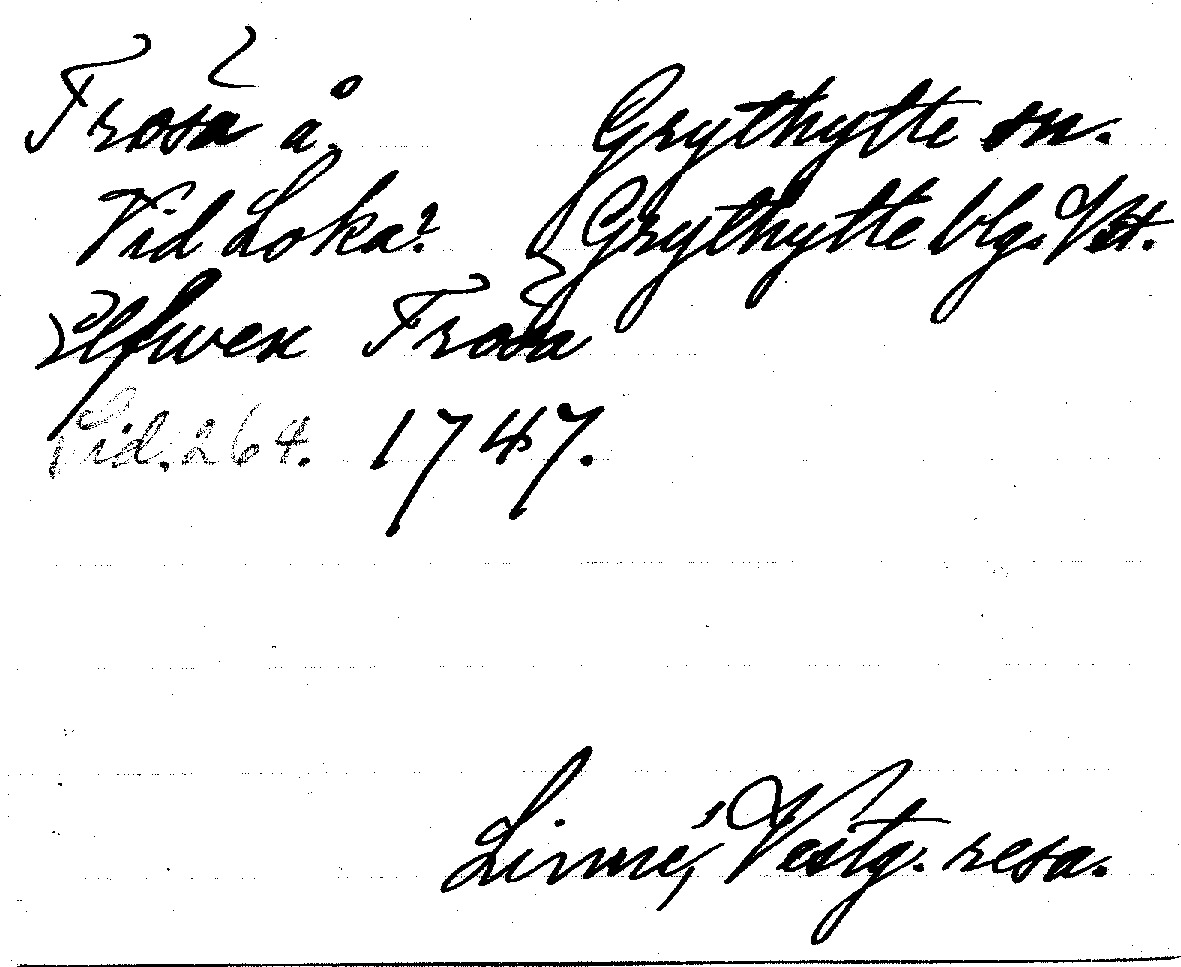 Trosa å. Grythytte sn.
Vid Loka? Grythytte blg. Vstl.
Elfwen Trosa
Sid. 264. 1747.
Linné, Vestg. resa.